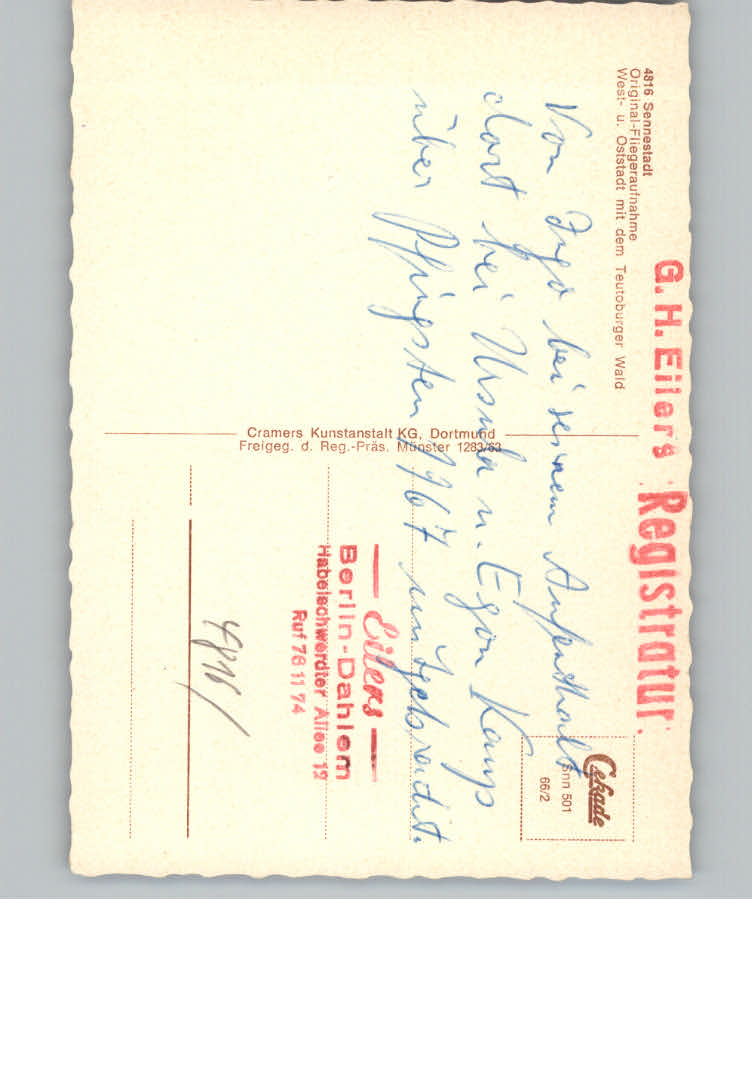 G. H. Eilers Registratur.
4816 Sennestadt
Original-Fliegeraufnahme
West- u. Oststadt mit dem Teutoburger Wald
Cekade
Snn 501
66/2
Von Ingo bei seinem Aufenthalt
dort bei Ursula u. Egon Kamp
über Pfingsten 1967 mitgebracht.
Cramers Kunstanstalt KG, Dortmund
Freigeg. d. Reg.-Präs. Münster 1283/63
— Eilers —
Berlin-Dahlem
Habelschwerdter Allee 12
Ruf 76 11 74
4816/